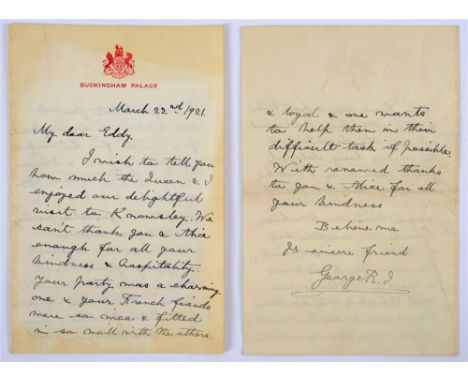 BUCKINGHAM PALACE
March 22nd/1921.
My dear Eddy.
I wish to tell you
how much the Queen & I
enjoyed our delightful
visit to Knowsley. We
can't thank you & Alice
enough for all your
kindness & hospitality.
Your party was a charming
one & your French friends
were so nice & fitted
in so well with the others.
& loyal & one wants
to help them in their
difficult task if possible.
With renewed thanks
to you & Alice for all
your kindness
Believe me
Yr sincere friend
George R.I.